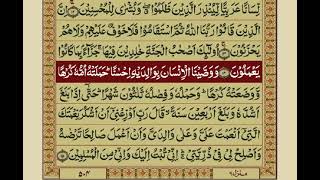 لِّسَانًا عَرَبِيًّا لِّيُنذِرَ الَّذِينَ ظَلَمُوا ۖ وَبُشْرَىٰ لِلْمُحْسِنِينَ ۝ إِنَّ
الَّذِينَ قَالُوا رَبُّنَا اللَّهُ ثُمَّ اسْتَقَامُوا فَلَا خَوْفٌ عَلَيْهِمْ وَلَا هُمْ
يَحْزَنُونَ ۝ أُولَٰئِكَ أَصْحَابُ الْجَنَّةِ خَالِدِينَ فِيهَا ۚ جَزَاءً بِمَا كَانُوا
يَعْمَلُونَ ۝ وَوَصَّيْنَا الْإِنسَانَ بِوَالِدَيْهِ إِحْسَانًا ۖ حَمَلَتْهُ أُمُّهُ كُرْهًا
وَوَضَعَتْهُ كُرْهًا ۖ وَحَمْلُهُ وَفِصَالُهُ ثَلَاثُونَ شَهْرًا ۚ حَتَّىٰ إِذَا بَلَغَ
أَشُدَّهُ وَبَلَغَ أَرْبَعِينَ سَنَةً ۙ قَالَ رَبِّ أَوْزِعْنِي أَنْ أَشْكُرَ نِعْمَتَكَ
الَّتِي أَنْعَمْتَ عَلَيَّ وَعَلَىٰ وَالِدَيَّ وَأَنْ أَعْمَلَ صَالِحًا تَرْضَاهُ
وَأَصْلِحْ لِي فِي ذُرِّيَّتِي ۖ إِنِّي تُبْتُ إِلَيْكَ وَإِنِّي مِنَ الْمُسْلِمِينَ ۝
۵۰۴